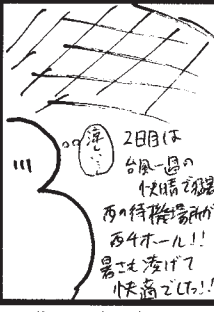 涼しい…
2日目は
台風一過の
快晴で猛暑
西の待機場所が
西4ホール!!
暑さも凌げて
快適でした!!